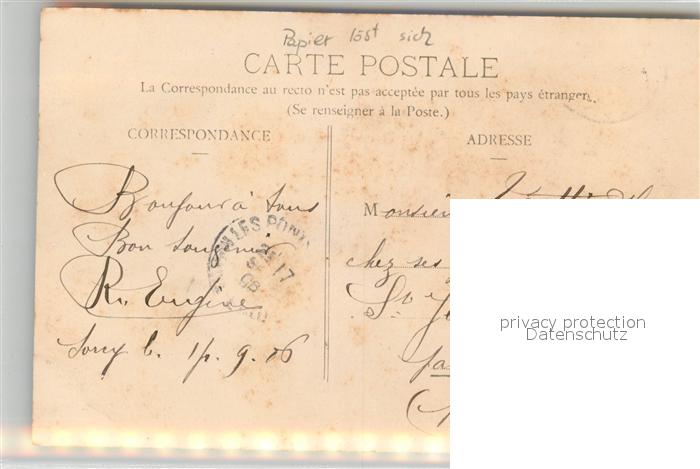 Papier löst sich
CARTE POSTALE
La Correspondance au recto n'est pas acceptée par tous les pays étrangers.
(Se renseigner à la Poste.)
CORRESPONDANCE
ADRESSE
Bonjour à tous
Bon souvenir
R. Eugène
9. 06
LES PONTS
17
Monsieur
chez ses
St
privacy protection
Datenschutz